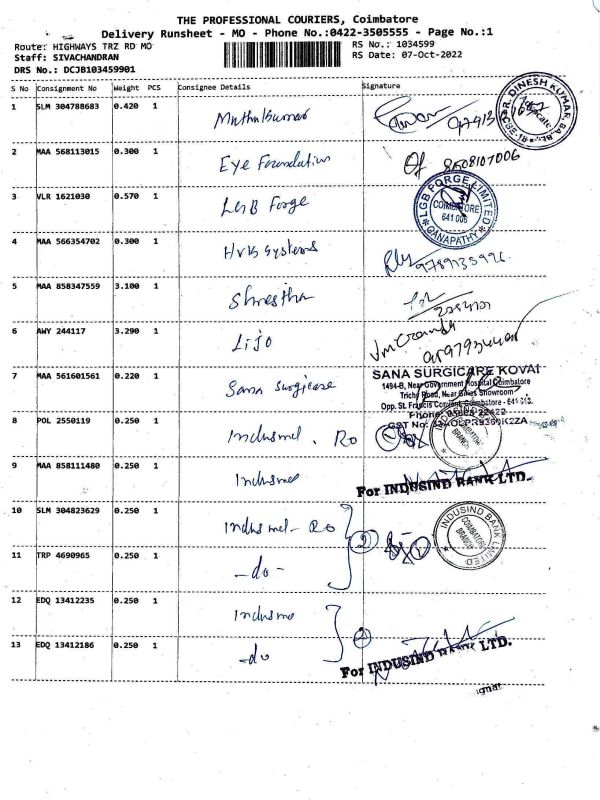 THE PROFESSIONAL COURIERS, Coimbatore
Delivery Runsheet - MO - Phone No.:0422-3505555 - Page No.:1
Route: HIGHWAYS TRZ RD MO
RS No.: 1034599
Staff: SIVACHANDRAN
RS Date: 07-Oct-2022
DRS No.: DCJB103459901
S No Consignment No Weight PCS Consignee Details Signature
1 SLM 304788683 0.420 1 Muthukumar
2 MAA 568113015 0.300 1 Eye Foundation 8508107006
3 VLR 1621030 0.570 1 LGB Forge
LGB FORGE LIMITED
COIMBATORE
641 006
GANAPATHY
4 MAA 566354702 0.300 1 HVB Systems
5 MAA 858347559 3.100 1 Shrestha
6 AWY 244117 3.290 1 Lijo
7 MAA 561601561 0.220 1 Sana Surgicare
SANA SURGICARE KOVAI
1494-B, Near Government Hospital Coimbatore
Trichy Road, Near Showroom
Opp. St. Francis Coimbatore - 641
Phone
GST No:
8 POL 2550119 0.250 1 Indusmel. RO
9 MAA 858111480 0.250 1 Indusmel
For INDUSIND BANK LTD.
10 SLM 304823629 0.250 1 Indusmel - RO
2
INDUSIND BANK LIMITED
COIMBATORE
BRANCH
11 TRP 4690965 0.250 1 -do-
12 EDQ 13412235 0.250 1 Indusmel
2
13 EDQ 13412186 0.250 1 -do
For INDUSIND BANK LTD.